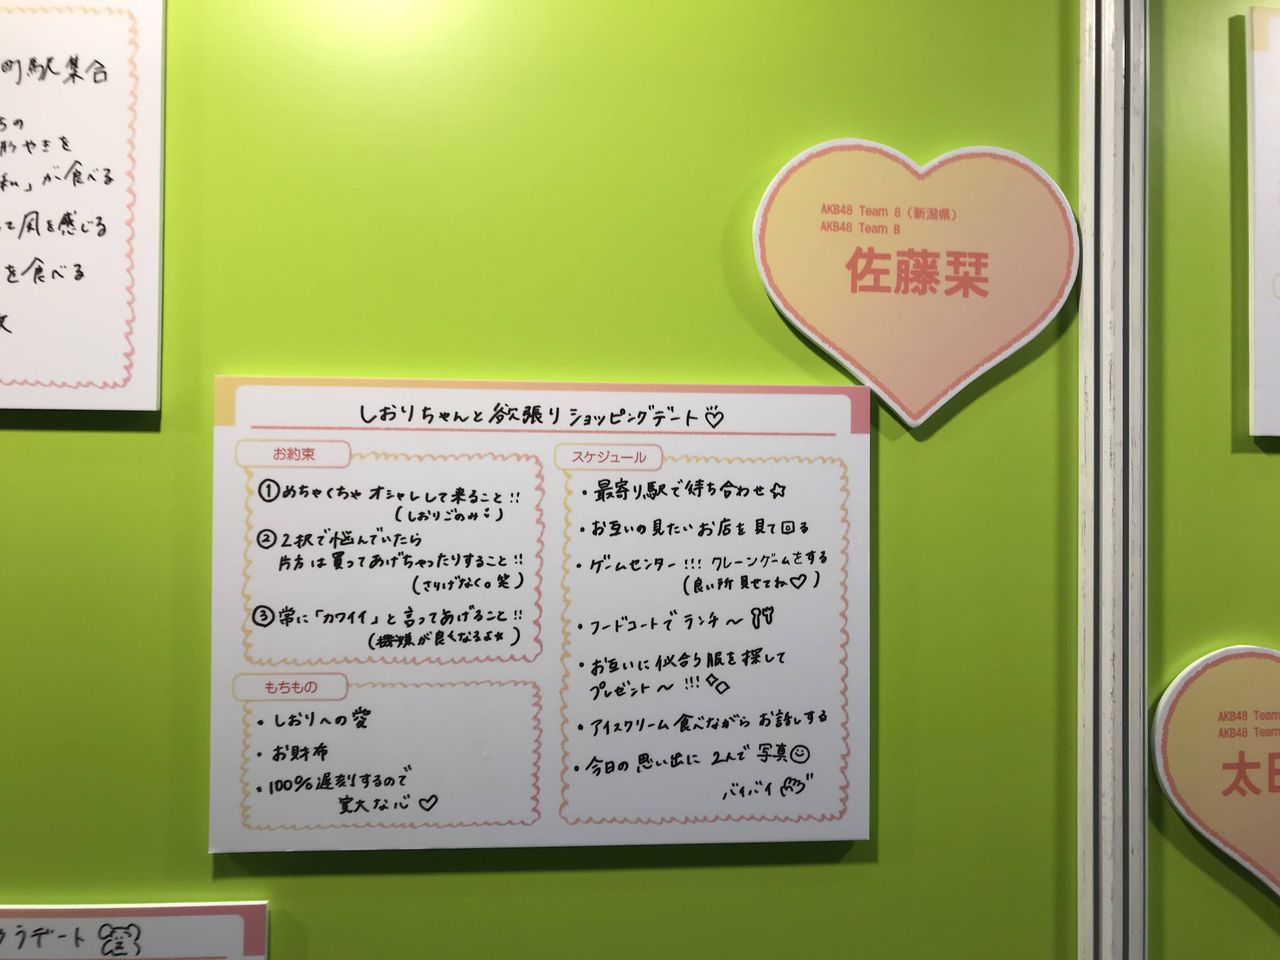 町駅集合
ちの
やきを
」が食べる
て風を感じる
を食べる
AKB48 Team 8（新潟県）
AKB48 Team B
佐藤栞
しおりちゃんと欲張りショッピングデート♡
お約束
①めちゃくちゃオシャレして来ること!!
(しおりごのみ)
②2択で悩んでいたら
片方は買ってあげちゃったりすること!!
(さりげなく。笑)
③常に「カワイイ」と言ってあげること!!
(機嫌が良くなるよ☆)
もちもの
・しおりへの愛
・お財布
・100%遅刻するので
寛大な心♡
スケジュール
・最寄り駅で待ち合わせ☆
・お互いの見たいお店を見て回る
・ゲームセンター!!! クレーンゲームをする
(良い所見せてね♡)
・フードコートでランチ〜
・お互いに似合う服を探して
プレゼント〜!!!
・アイスクリーム食べながらお話しする
・今日の思い出に2人で写真☺
バイバイ
AKB48 Team
AKB48 Team
太田
ウラデート